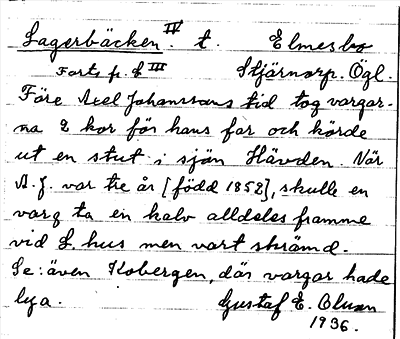 Lagerbäcken. IV t. Elmesbo
Forts fr. L III Stjärnorp. Ögl.
Före Axel Johanssons tid tog vargar-
na 2 kor för hans far och körde
ut en stut i sjön Hävden. När
A. J. var tre år [född 1852], skulle en
varg ta en kalv alldeles framme
vid L. hus men vart skrämd.
Se: även Kobergen, där vargar hade
lya. Gustaf E. Oluson
1936.